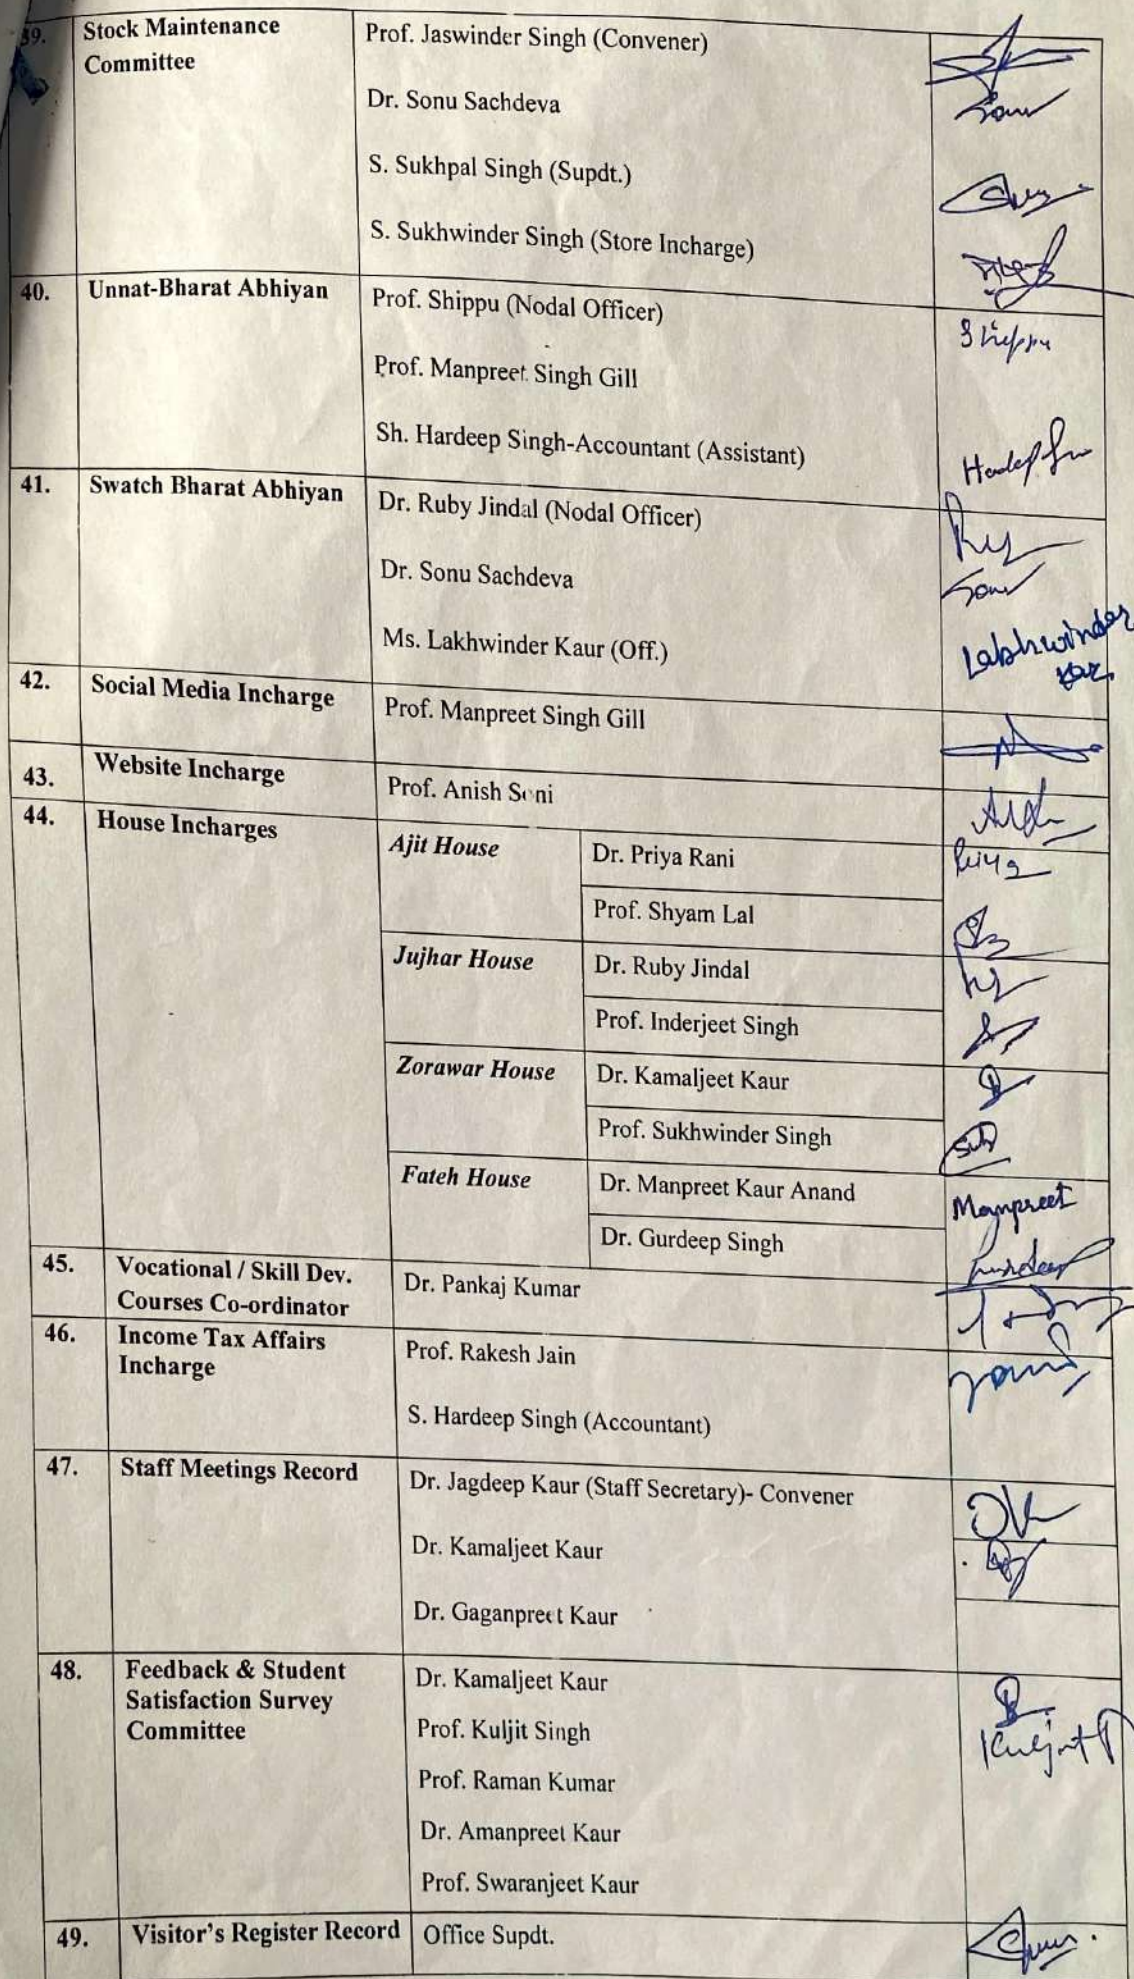 39. Stock Maintenance Committee
Prof. Jaswinder Singh (Convener)
Dr. Sonu Sachdeva
S. Sukhpal Singh (Supdt.)
S. Sukhwinder Singh (Store Incharge)
40. Unnat-Bharat Abhiyan
Prof. Shippu (Nodal Officer)
Shippu
Prof. Manpreet Singh Gill
Sh. Hardeep Singh-Accountant (Assistant)
41. Swatch Bharat Abhiyan
Dr. Ruby Jindal (Nodal Officer)
Dr. Sonu Sachdeva
Ms. Lakhwinder Kaur (Off.)
Lakhwinder
42. Social Media Incharge
Prof. Manpreet Singh Gill
43. Website Incharge
Prof. Anish Soni
44. House Incharges
Ajit House
Dr. Priya Rani
Priya
Prof. Shyam Lal
Jujhar House
Dr. Ruby Jindal
Prof. Inderjeet Singh
Zorawar House
Dr. Kamaljeet Kaur
Prof. Sukhwinder Singh
Fateh House
Dr. Manpreet Kaur Anand
Manpreet
Dr. Gurdeep Singh
Gurdeep
45. Vocational / Skill Dev.
Courses Co-ordinator
Dr. Pankaj Kumar
46. Income Tax Affairs
Incharge
Prof. Rakesh Jain
S. Hardeep Singh (Accountant)
47. Staff Meetings Record
Dr. Jagdeep Kaur (Staff Secretary)- Convener
Dr. Kamaljeet Kaur
Dr. Gaganpreet Kaur
48. Feedback & Student
Satisfaction Survey
Committee
Dr. Kamaljeet Kaur
Prof. Kuljit Singh
Prof. Raman Kumar
Dr. Amanpreet Kaur
Prof. Swaranjeet Kaur
49. Visitor's Register Record
Office Supdt.